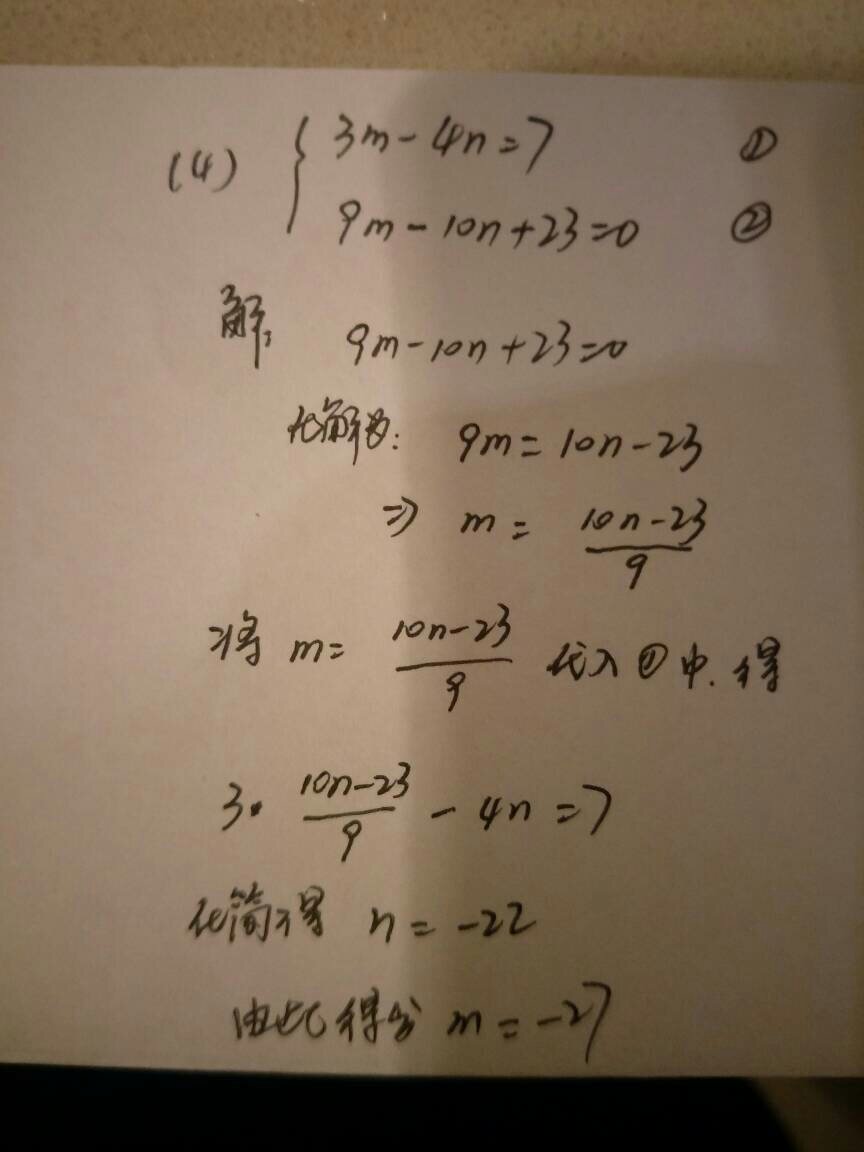 (4) { 3m-4n=7 ①
9m-10n+23=0 ②
解: 9m-10n+23=0
化解为: 9m=10n-23
⇒ m= 10n-23/9
将 m= 10n-23/9 代入①中.得
3· 10n-23/9 -4n=7
化简得 n=-22
由此得出 m=-27